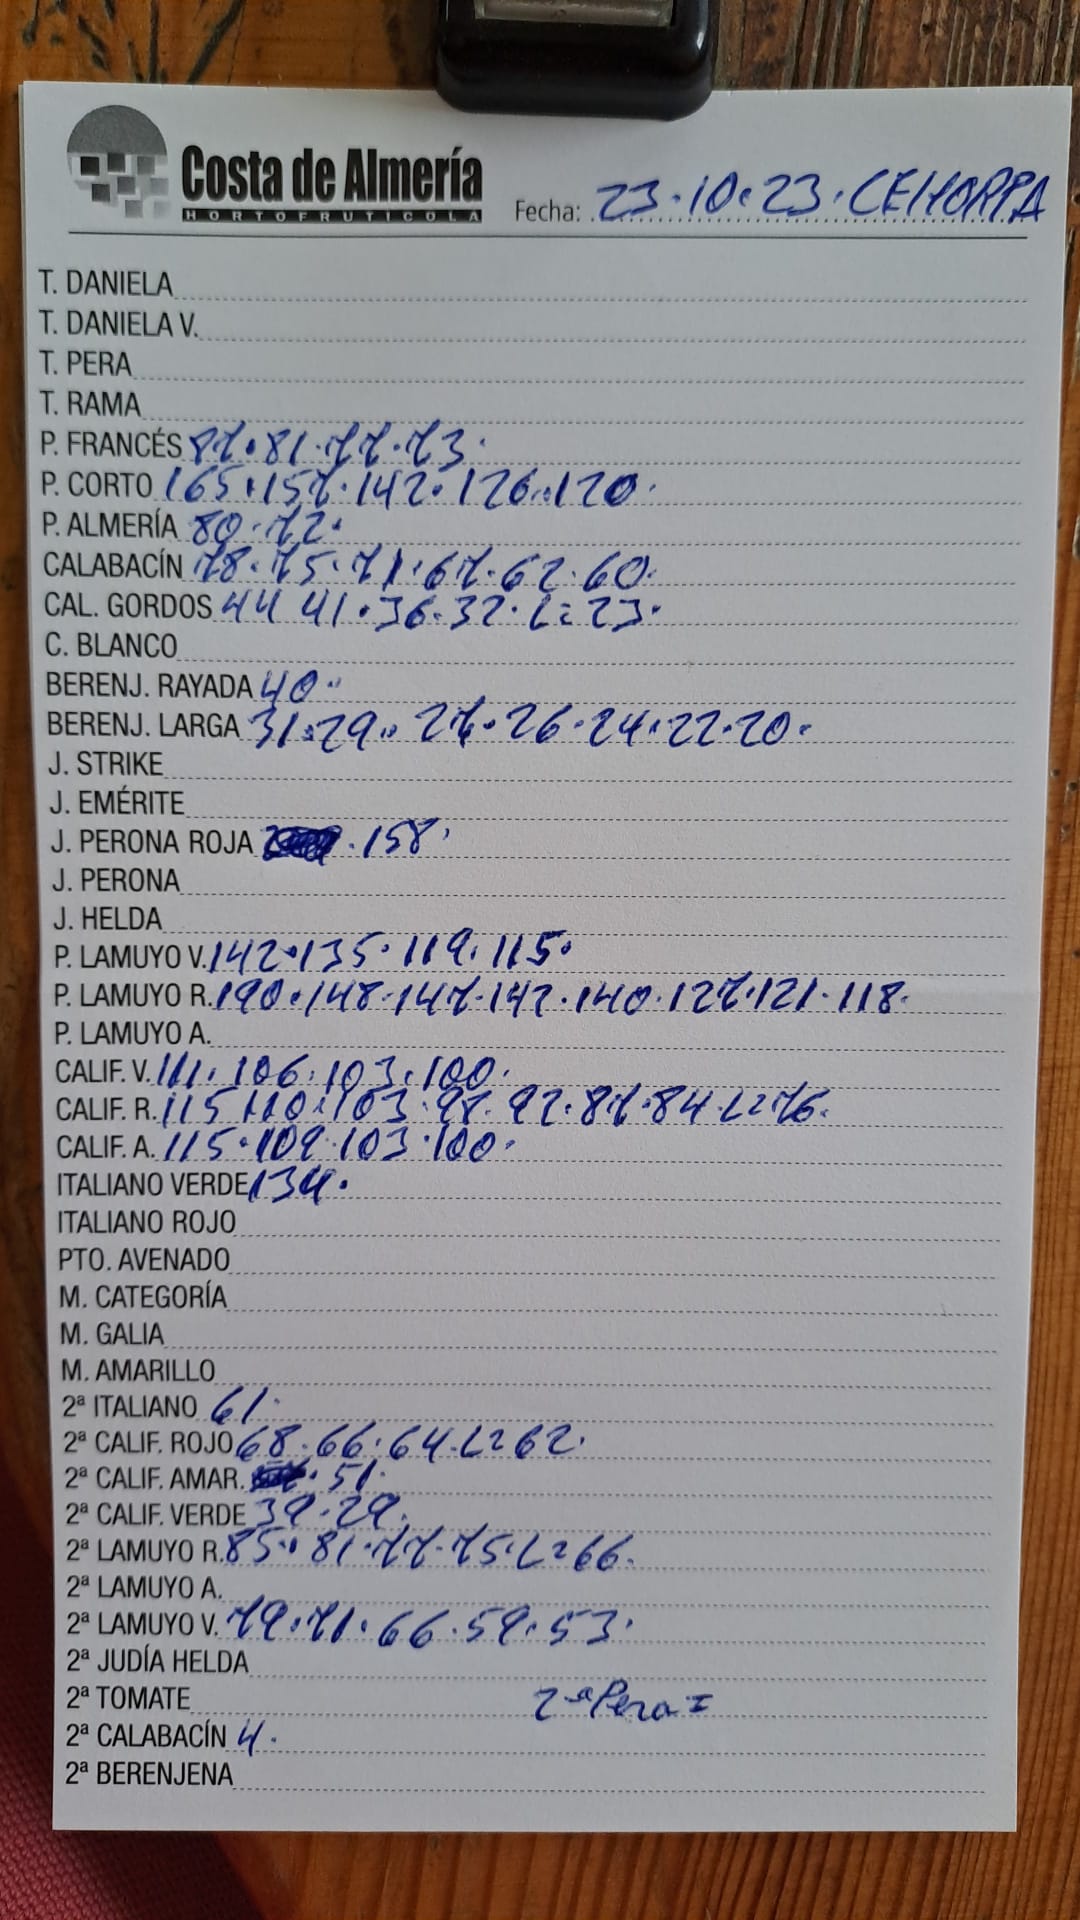 Costa de Almería
HORTOFRUTICOLA
Fecha: 23.10.23.CEHORPA
T. DANIELA
T. DANIELA V.
T. PERA
T. RAMA
P. FRANCÉS 87.81.77.73.
P. CORTO 165.157.142.126.120.
P. ALMERÍA 80.72.
CALABACÍN 78.75.71.67.62.60.
CAL. GORDOS 44 41.36.32.L=23.
C. BLANCO
BERENJ. RAYADA 40.
BERENJ. LARGA 31.29.27.26.24.22.20.
J. STRIKE
J. EMÉRITE
J. PERONA ROJA .158.
J. PERONA
J. HELDA
P. LAMUYO V. 142.135.119.115.
P. LAMUYO R. 190.148.147.142.140.127.121.118.
P. LAMUYO A.
CALIF. V. 111.106.103.100.
CALIF. R. 115.110.103.98.92.87.84.L=76.
CALIF. A. 115.109.103.100.
ITALIANO VERDE 134.
ITALIANO ROJO
PTO. AVENADO
M. CATEGORÍA
M. GALIA
M. AMARILLO
2ª ITALIANO 61.
2ª CALIF. ROJO 68.66.64.L=62.
2ª CALIF. AMAR. .51.
2ª CALIF. VERDE 39.29.
2ª LAMUYO R. 85.81.77.75.L=66.
2ª LAMUYO A.
2ª LAMUYO V. 79.71.66.59.53.
2ª JUDÍA HELDA
2ª TOMATE 2ª Pera=
2ª CALABACÍN 4.
2ª BERENJENA